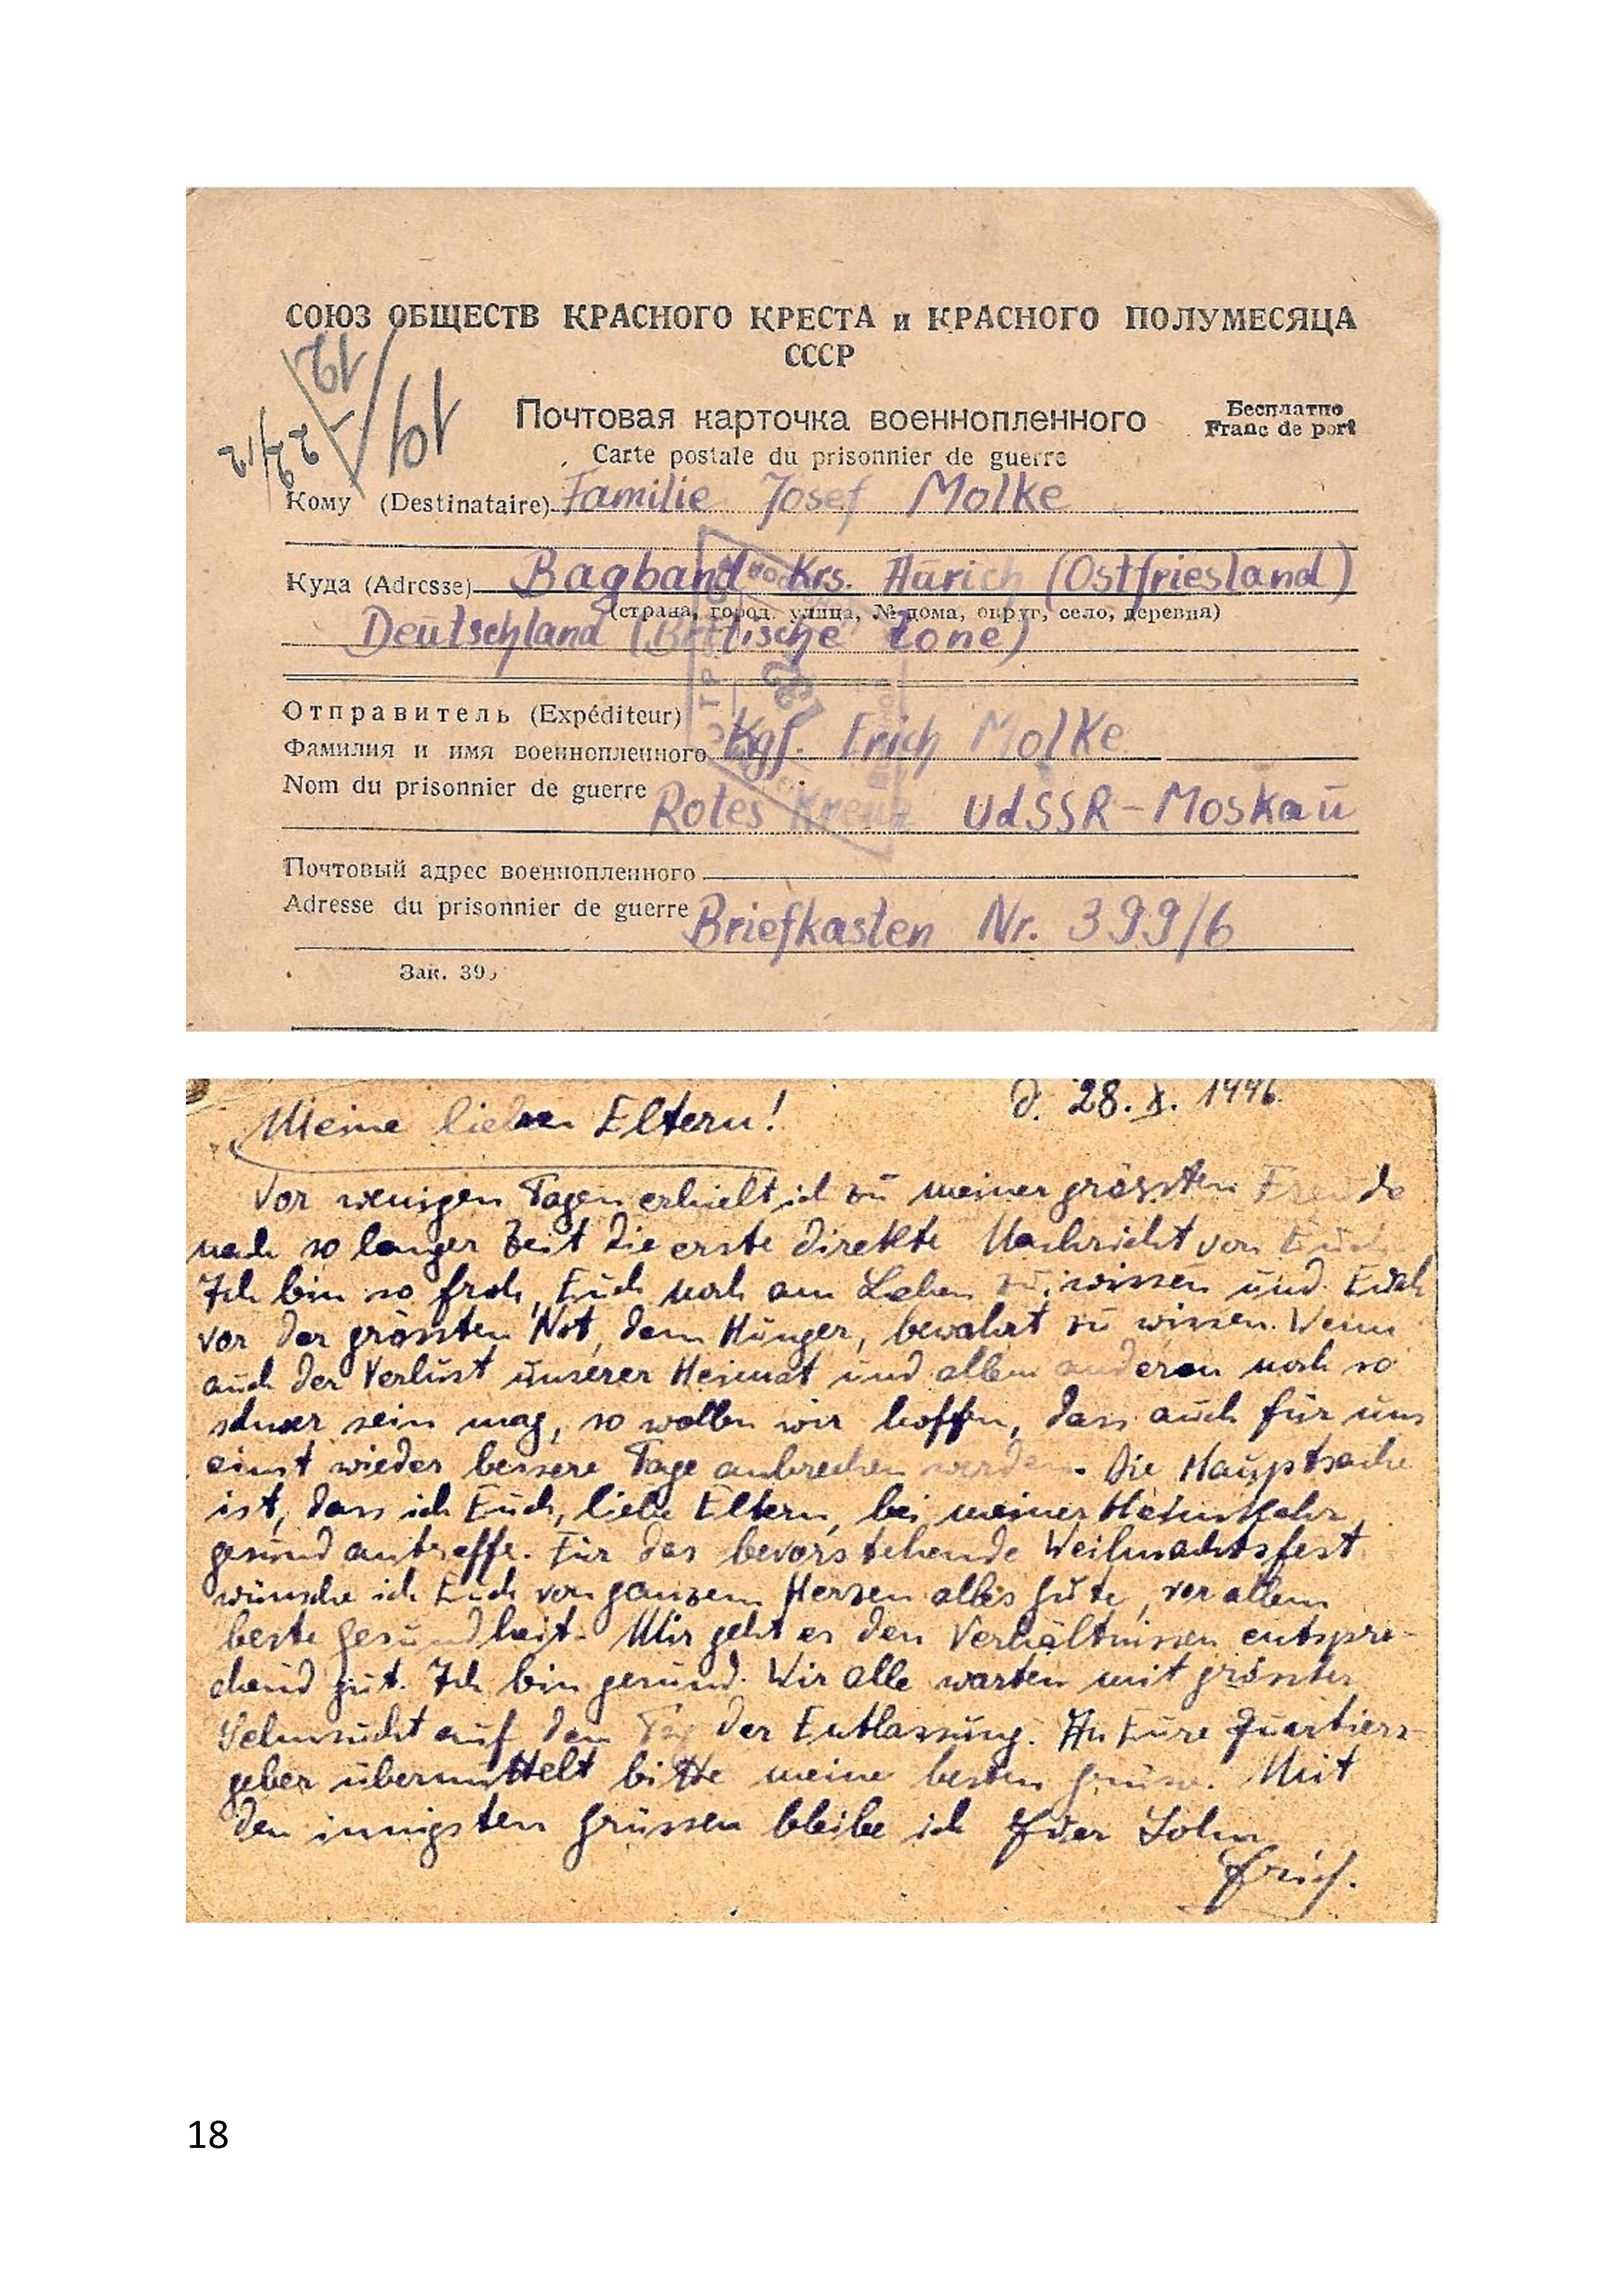 СОЮЗ ОБЩЕСТВ КРАСНОГО КРЕСТА и КРАСНОГО ПОЛУМЕСЯЦА
СССР
Почтовая карточка военнопленного
Бесплатно
Franc de port
Carte postale du prisonnier de guerre
Кому (Destinataire) Familie Josef Molke
Куда (Adresse) Bagband Krs. Aurich (Ostfriesland)
(страна, город, улица, № дома, округ, село, деревня)
Deutschland (Britische Zone)
Отправитель (Expéditeur)
Фамилия и имя военнопленного Kgf. Erich Molke
Nom du prisonnier de guerre
Rotes Kreuz UdSSR-Moskau
Почтовый адрес военнопленного
Adresse du prisonnier de guerre Briefkasten Nr. 399/6
Зак. 39
d. 28. X. 1946.
Meine lieben Eltern!
Vor wenigen Tagen erhielt ich zu meiner grössten Freude
nach so langer Zeit die erste direkte Nachricht von Euch.
Ich bin so froh, Euch noch am Leben zu wissen und Euch
vor der grössten Not, dem Hunger, bewahrt zu wissen. Wenn
auch der Verlust unserer Heimat und allem anderen noch so
schwer sein mag, so wollen wir hoffen, dass auch für uns
einst wieder bessere Tage anbrechen werden. Die Hauptsache
ist, dass ich Euch, liebe Eltern, bei meiner Heimkehr
gesund antreffe. Für das bevorstehende Weihnachtsfest
wünsche ich Euch von ganzem Herzen alles Gute, vor allem
beste Gesundheit. Mir geht es den Verhältnissen entspre-
chend gut. Ich bin gesund. Wir alle warten mit grösster
Sehnsucht auf den Tag der Entlassung. An Eure Quartiers-
geber übermittelt bitte meine besten Grüsse. Mit
den innigsten Grüssen bleibe ich Euer Sohn
Erich.
18